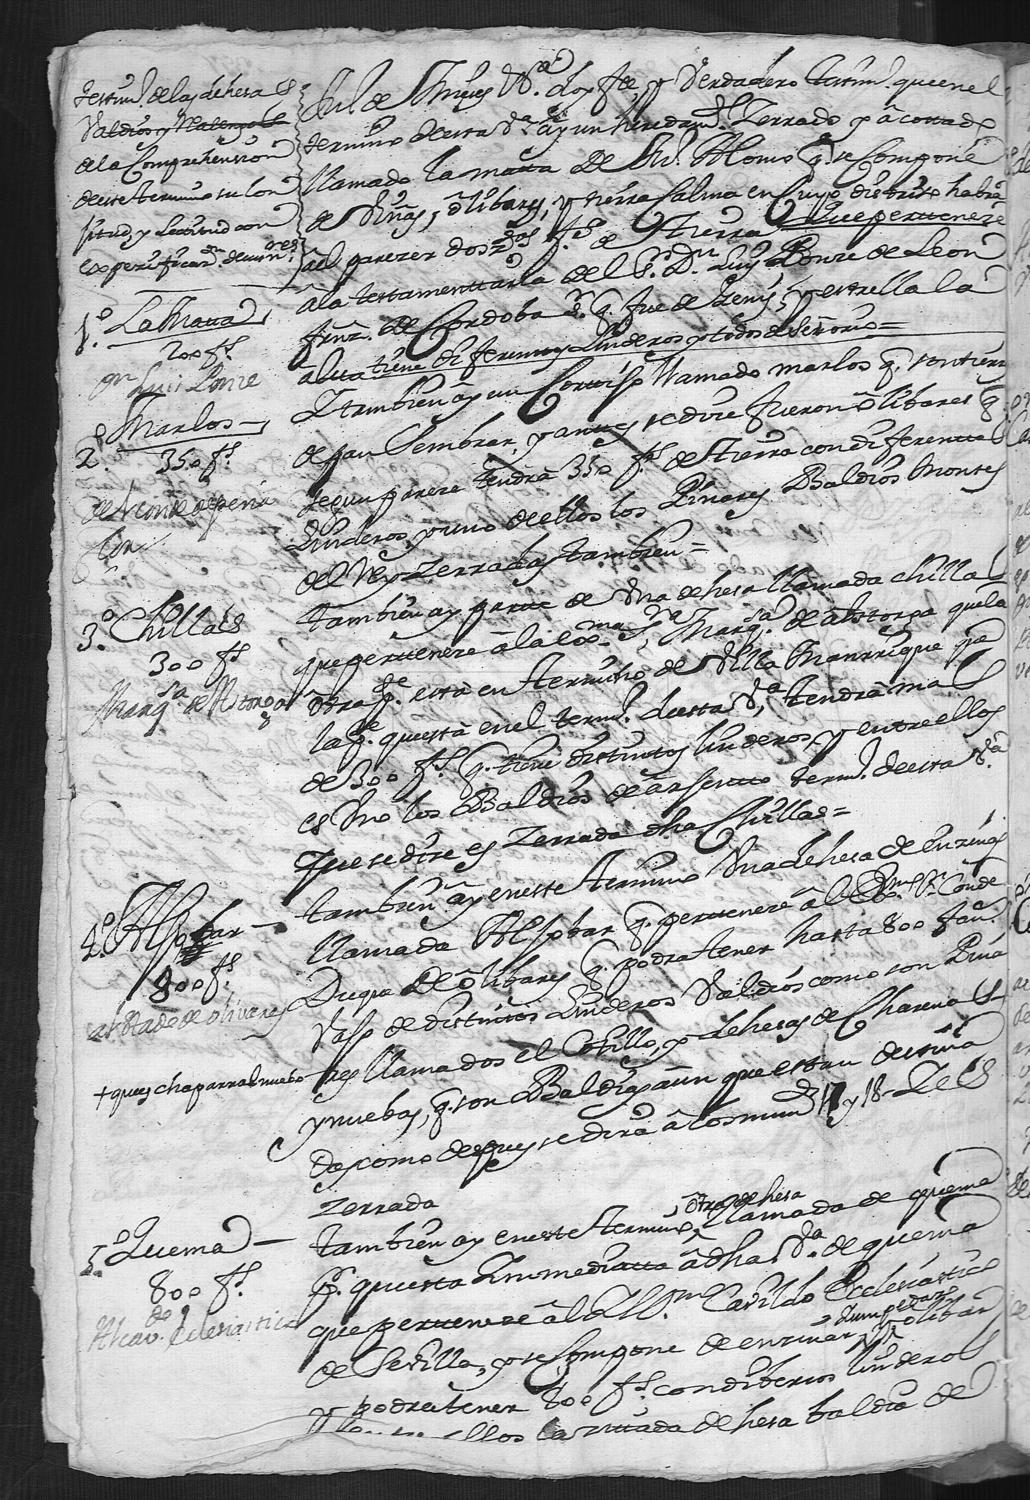 testim.º de las dehesas
valdios y Realengos
de la Comprehension
de este termino su lon
jitud y Latitud con
espesificaz.n de numeros
1.º La Matta
200 f.s
D.n Luis Ponze
2.º Marlos
350 f.s
del Conde de Peña
flor
3.º Chillas
300 f.s
Marq.sa de Astorga
4.º Alspbar
800 f.s
estado de olivares
+ que es chaparral nuebo
5.º Quema
800 f.s
Al cav.do Eclesiastico
doy fee, y Verdadero testim.º que en el
termino de esta V.a ay un heredam.to Zerrado y acotado
llamado la matta de S.n Alonso q. se Compone
de Viñas, olibares, y tierra Calma en Cuyo distrito habrá
al parezer dosz.tas f.s de tierra que pertenese
a la testamentaria del S.r D.n Luis Ponze de Leon
frnz. de Cordoba S.r q. fue de y estrella la
alta tiene diferentes Linderos y todos de Señorio =
Y tambien ay un Cortijo llamado marlos q. son tierras
de pan sembrar, y antes se dize fueron olibares q.
segun pareze tendrá 350 f.s de tierra con diferentes
Linderos, y uno de ellos los Pinares Baldios Montes
del Rey Zerradas tambien =
tambien ay parte de Una dehesa llamada chillas
que pertenese a la Ex.ma S.ra Marq.sa de Astorga que la
otra p.te está en termino de Villa Manrrique y a
la p.te que está en el term.º de esta V.a tendrá mas
de 300 f.s q. tiene distintos linderos, y entre ellos
es Uno los Baldios de term.º de esta V.a
que se dize es Zerrada dha Chillas =
tambien ay en este termino Una dehesa de enzinas
llamada Alspbar q. pertenese al Ex.mo S.r Conde
Duque de olibares q. podra tener hasta 800 fan.s
de distintos Linderos Valdios como son Pina
res llamados el Cotillo, y dehesas de Charcols
y nuebas, q. son Baldias aun que estan destina
das como despues se dirá a los num.os 17 y 18 = Y es
Zerrada
tambien ay en este termino otra dehesa llamada de quema
q. questa Ynmediatta a dha V.a de quema
que pertenese al Ill.mo Cavildo Eclesiastico
de Sevilla, y se Compone de enzinar olibar
y podra tener 800 f.s con diberços linderos
ellos la dehesa baldia de